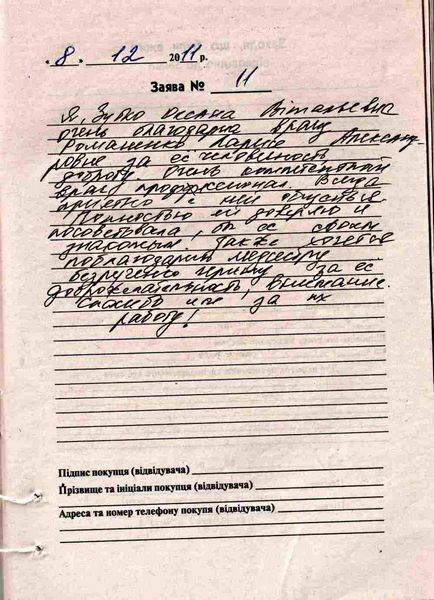 « 8 » 12 2011 р.
Заява № 11
Я, Зубко Оксана Витальевна
очень благодарна врачу
Романенко Ларисе Александ-
ровне за её человечность
доброту. Очень компетентный
врач, профессионал. Всегда
приятно с ней общаться.
Полностью ей доверяю и
посоветовала бы её своим
знакомым. Также хочется
поблагодарить медсестру
Безрученко Ирину за её
доброжелательность, внимание.
Спасибо им за их
работу!
Підпис покупця (відвідувача)
Прізвище та ініціали покупця (відвідувача)
Адреса та номер телефону покупя (відвідувача)